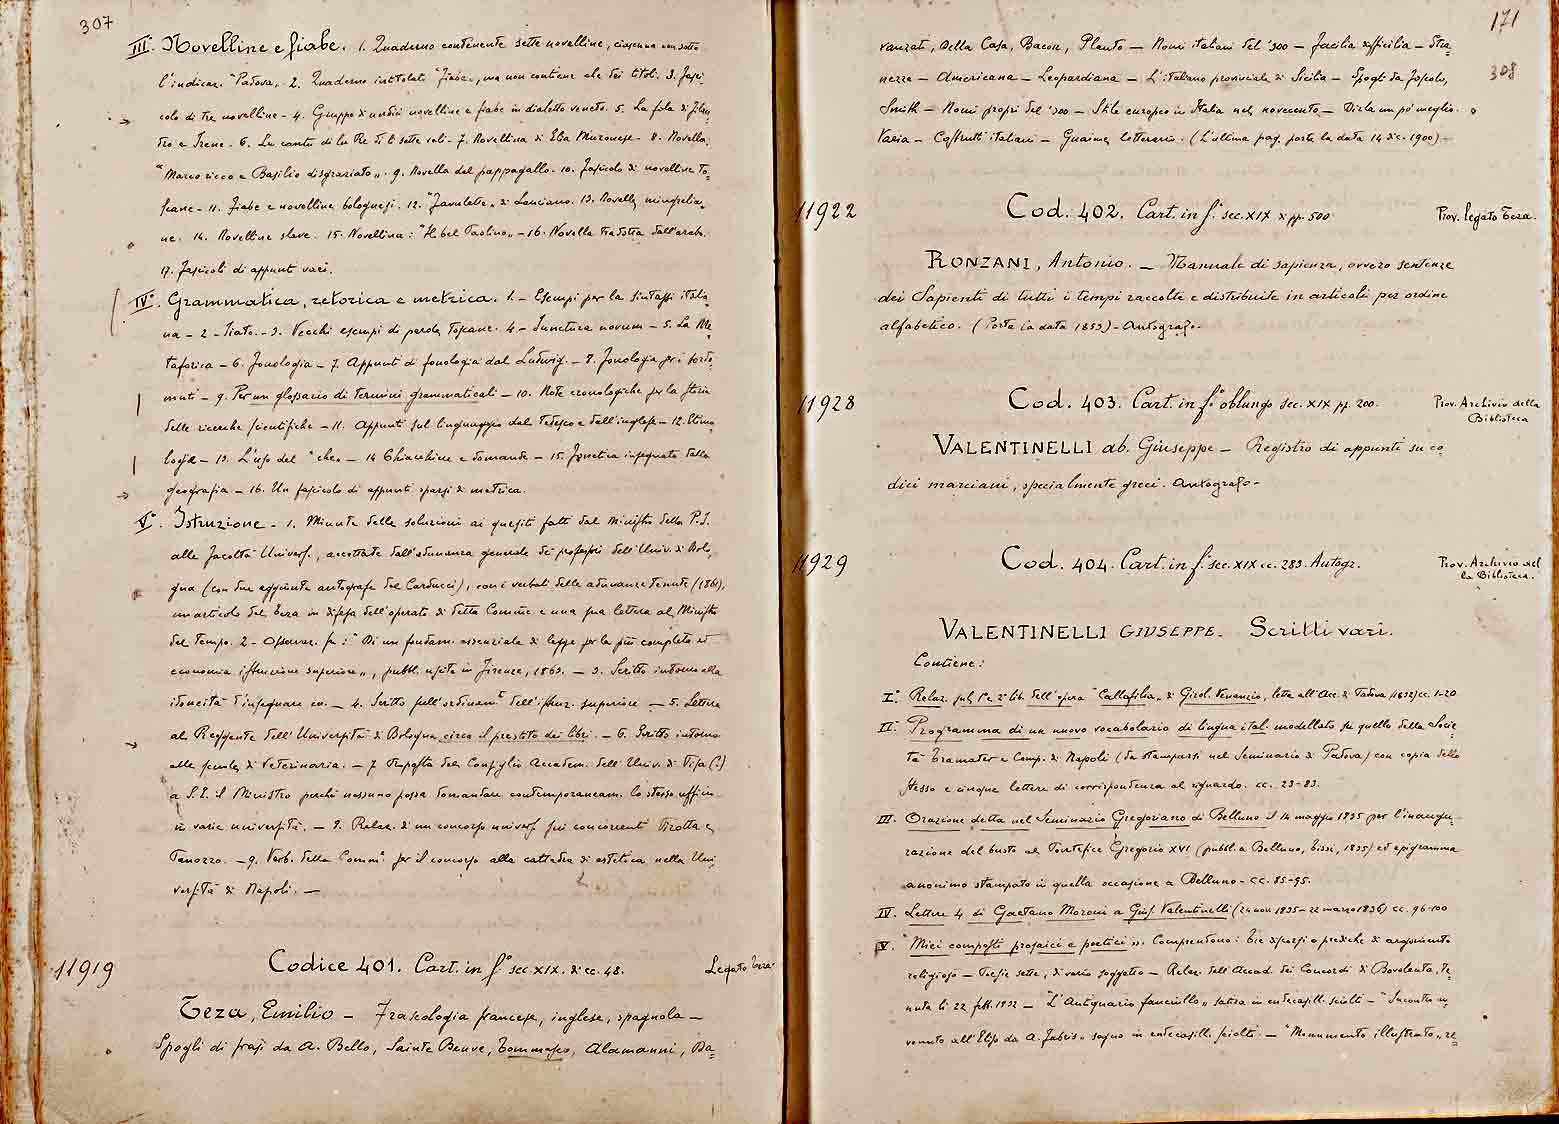 307
III. Novelline e fiabe. 1. Quaderno contenente sette novelline, ciascuna con sotto
l'indicaz. "Padova". 2. Quaderno intitolato "Fiabe", ma non contiene che dei titoli. 3. Fasci=
colo di tre novelline - 4. Gruppo di undici novelline e fiabe in dialetto veneto. 5. La fola di Filen=
dro e Irene - 6. La cantù di lu Re di li sette veli - 7. Novellina di Elia Muronese - 8. Novella:
"Marco ricco e Basilio disgraziato". 9. Novella del pappagallo. 10. Fascicolo di novelline to=
scane - 11. Fiabe e novelline bolognesi. 12. "Favulette" di Lanciano. 13. Novelle mingrelia=
ne. 14. Novelline slave. 15. Novellina: "Il bel Paolino" - 16. Novella tradotta dall'arab.
17. Fascicoli di appunti vari.
IV°. Grammatica, retorica e metrica. 1. - Esempi per la sintassi italia=
na - 2 - Iiato. - 3. Vecchi esempi di parole toscane. 4 - Junctura novum - 5. La Me=
taforica - 6. Fonologia - 7. Appunti di fonologia dal Ludwig. - 8. Fonologia per i sordo=
muti - 9. Per un glossario di termini grammaticali - 10. Note cronologiche per la storia
delle ricerche scientifiche - 11. Appunti sul linguaggio dal tedesco e dall'inglese - 12. Etimo=
logie - 13. L'uso del "che" - 14 Chiacchiere e domande - 15. Fonetica insegnata dalla
geografia - 16. Un fascicolo di appunti sparsi di metrica.
V°. Istruzione - 1. Minute delle soluzioni ai quesiti fatti dal Ministro della P.I.
alle Facoltà Univers., accettate dall'adunanza generale dei professori dell'Univ. di Bolo=
gna (con due aggiunte autografe del Carducci), con i verbali delle adunanze tenute (1861),
un articolo del Teza in difesa dell'operato di detta Comm.e e una sua lettera al Ministro
del tempo. 2 - Osservaz. su: "Di un fondam. essenziale di legge per la più completa ed
economica istruzione superiore", pubbl. uscita in Firenze, 1863. - 3. Scritto intorno alla
idoneità d'insegnare ecc. - 4. Scritto sull'ordinam.to dell'istruz. superiore - 5. Lettera
al Reggente dell'Università di Bologna circa il prestito dei libri. - 6. Scritto intorno
alle scuole di Veterinaria. - 7 Risposta del Consiglio Accadem. dell'Univ. di Pisa (?)
a S.E. il Ministro perchè nessuno possa domandare contemporaneam. lo stesso ufficio
in varie università. - 8. Relaz. di un concorso univers. sui concorrenti Trotta e
Tanozzo. - 9. Verb. della Comm.e per il concorso alla cattedra di estetica nella Uni=
versità di Napoli. -
11919
Codice 401. Cart. in f.° sec. XIX. di cc. 48.
Legato Teza.
Teza, Emilio - Fraseologia francese, inglese, spagnola -
Spogli di frasi da A. Bello, Sainte Beuve, Tommaseo, Alamanni, Da=
171
308
vanzati, Della Casa, Bacon, Plauto - Nomi italiani del '300 - Facilia difficilia - Stra=
nezze - Americana - Leopardiana - L'italiano provinciale di Sicilia - Spogli da Foscolo,
Smith - Nomi propri del '300 - Stile europeo in Italia nel novecento - Dirla un po' meglio.
Varia - Costrutti italiani - Guaime letterario. (L'ultima pag. porta la data 14 dic. 1900) -
11922
Cod. 402. Cart. in f.° sec. XIX di pp. 500
Prov. legato Teza.
RONZANI, Antonio. - Manuale di sapienza, ovvero sentenze
dei Sapienti di tutti i tempi raccolte e distribuite in articoli per ordine
alfabetico. (Porta la data 1853) - Autografo -
11928
Cod. 403. Cart. in f.° oblungo sec. XIX pp. 200.
Prov. Archivio della
Biblioteca
VALENTINELLI ab. Giuseppe - Registro di appunti su co=
dici marciani, specialmente greci. Autografo -
11929
Cod. 404. Cart. in f.° sec. XIX cc. 283. Autogr.
Prov. Archivio del
la Biblioteca.
VALENTINELLI GIUSEPPE. Scritti vari.
Contiene:
I.° Relaz. sul 1° e 2° lib. dell'opera "Callofilia" di Girol. Venanzio, letta all'Acc. di Padova (1832) cc. 1-20
II. Programma di un nuovo vocabolario di lingua ital. modellato su quello della Socie=
tà Tramater e Comp. di Napoli (da stamparsi nel Seminario di Padova) con copia dello
stesso e cinque lettere di corrispondenza al riguardo. cc. 23-83.
III. Orazione detta nel Seminario Gregoriano di Belluno il 14 maggio 1835 per l'inaugu=
razione del busto al Pontefice Gregorio XVI (pubbl. a Belluno, Tissi, 1835) ed epigramma
anonimo stampato in quella occasione a Belluno - cc. 85-95.
IV. Lettere 4 di Gaetano Moroni a Gius. Valentinelli (24 nov. 1835 - 22 marzo 1836) cc. 96-100
V. "Miei composti prosaici e poetici". Comprendono: Tre discorsi o prediche di argomento
religioso - Poesie sette, di vario soggetto - Relaz. dell'Accad. dei Concordi di Bovolenta, te=
nuta li 22 febb. 1832 - "L'Antiquario fanciullo" satira in endecasill. sciolti - "Incontro av=
venuto all'Eliso da A. Fabris" sogno in endecasill. sciolti. - "Monumento illustrato, ze=